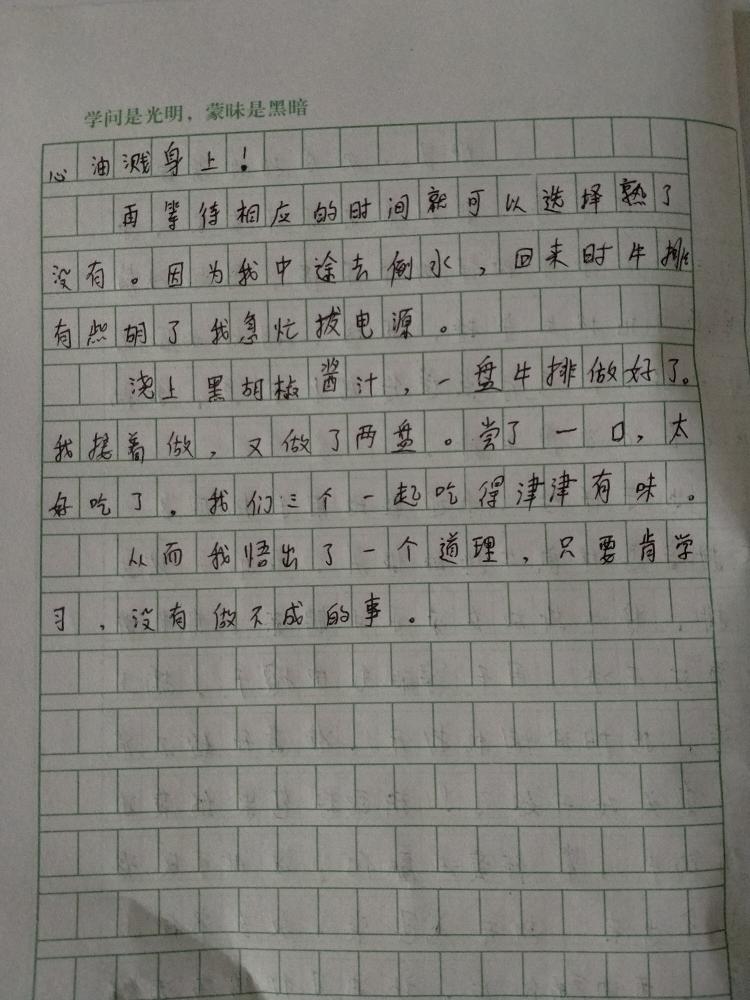 学问是光明，蒙昧是黑暗
心油溅身上！
再等待相应的时间就可以选择熟了
没有。因为我中途去倒水，回来时牛排
有些胡了我急忙拔电源。
浇上黑胡椒酱汁，一盘牛排做好了。
我接着做，又做了两盘。尝了一口，太
好吃了。我们三个一起吃得津津有味。
从而我悟出了一个道理，只要肯学
习，没有做不成的事。